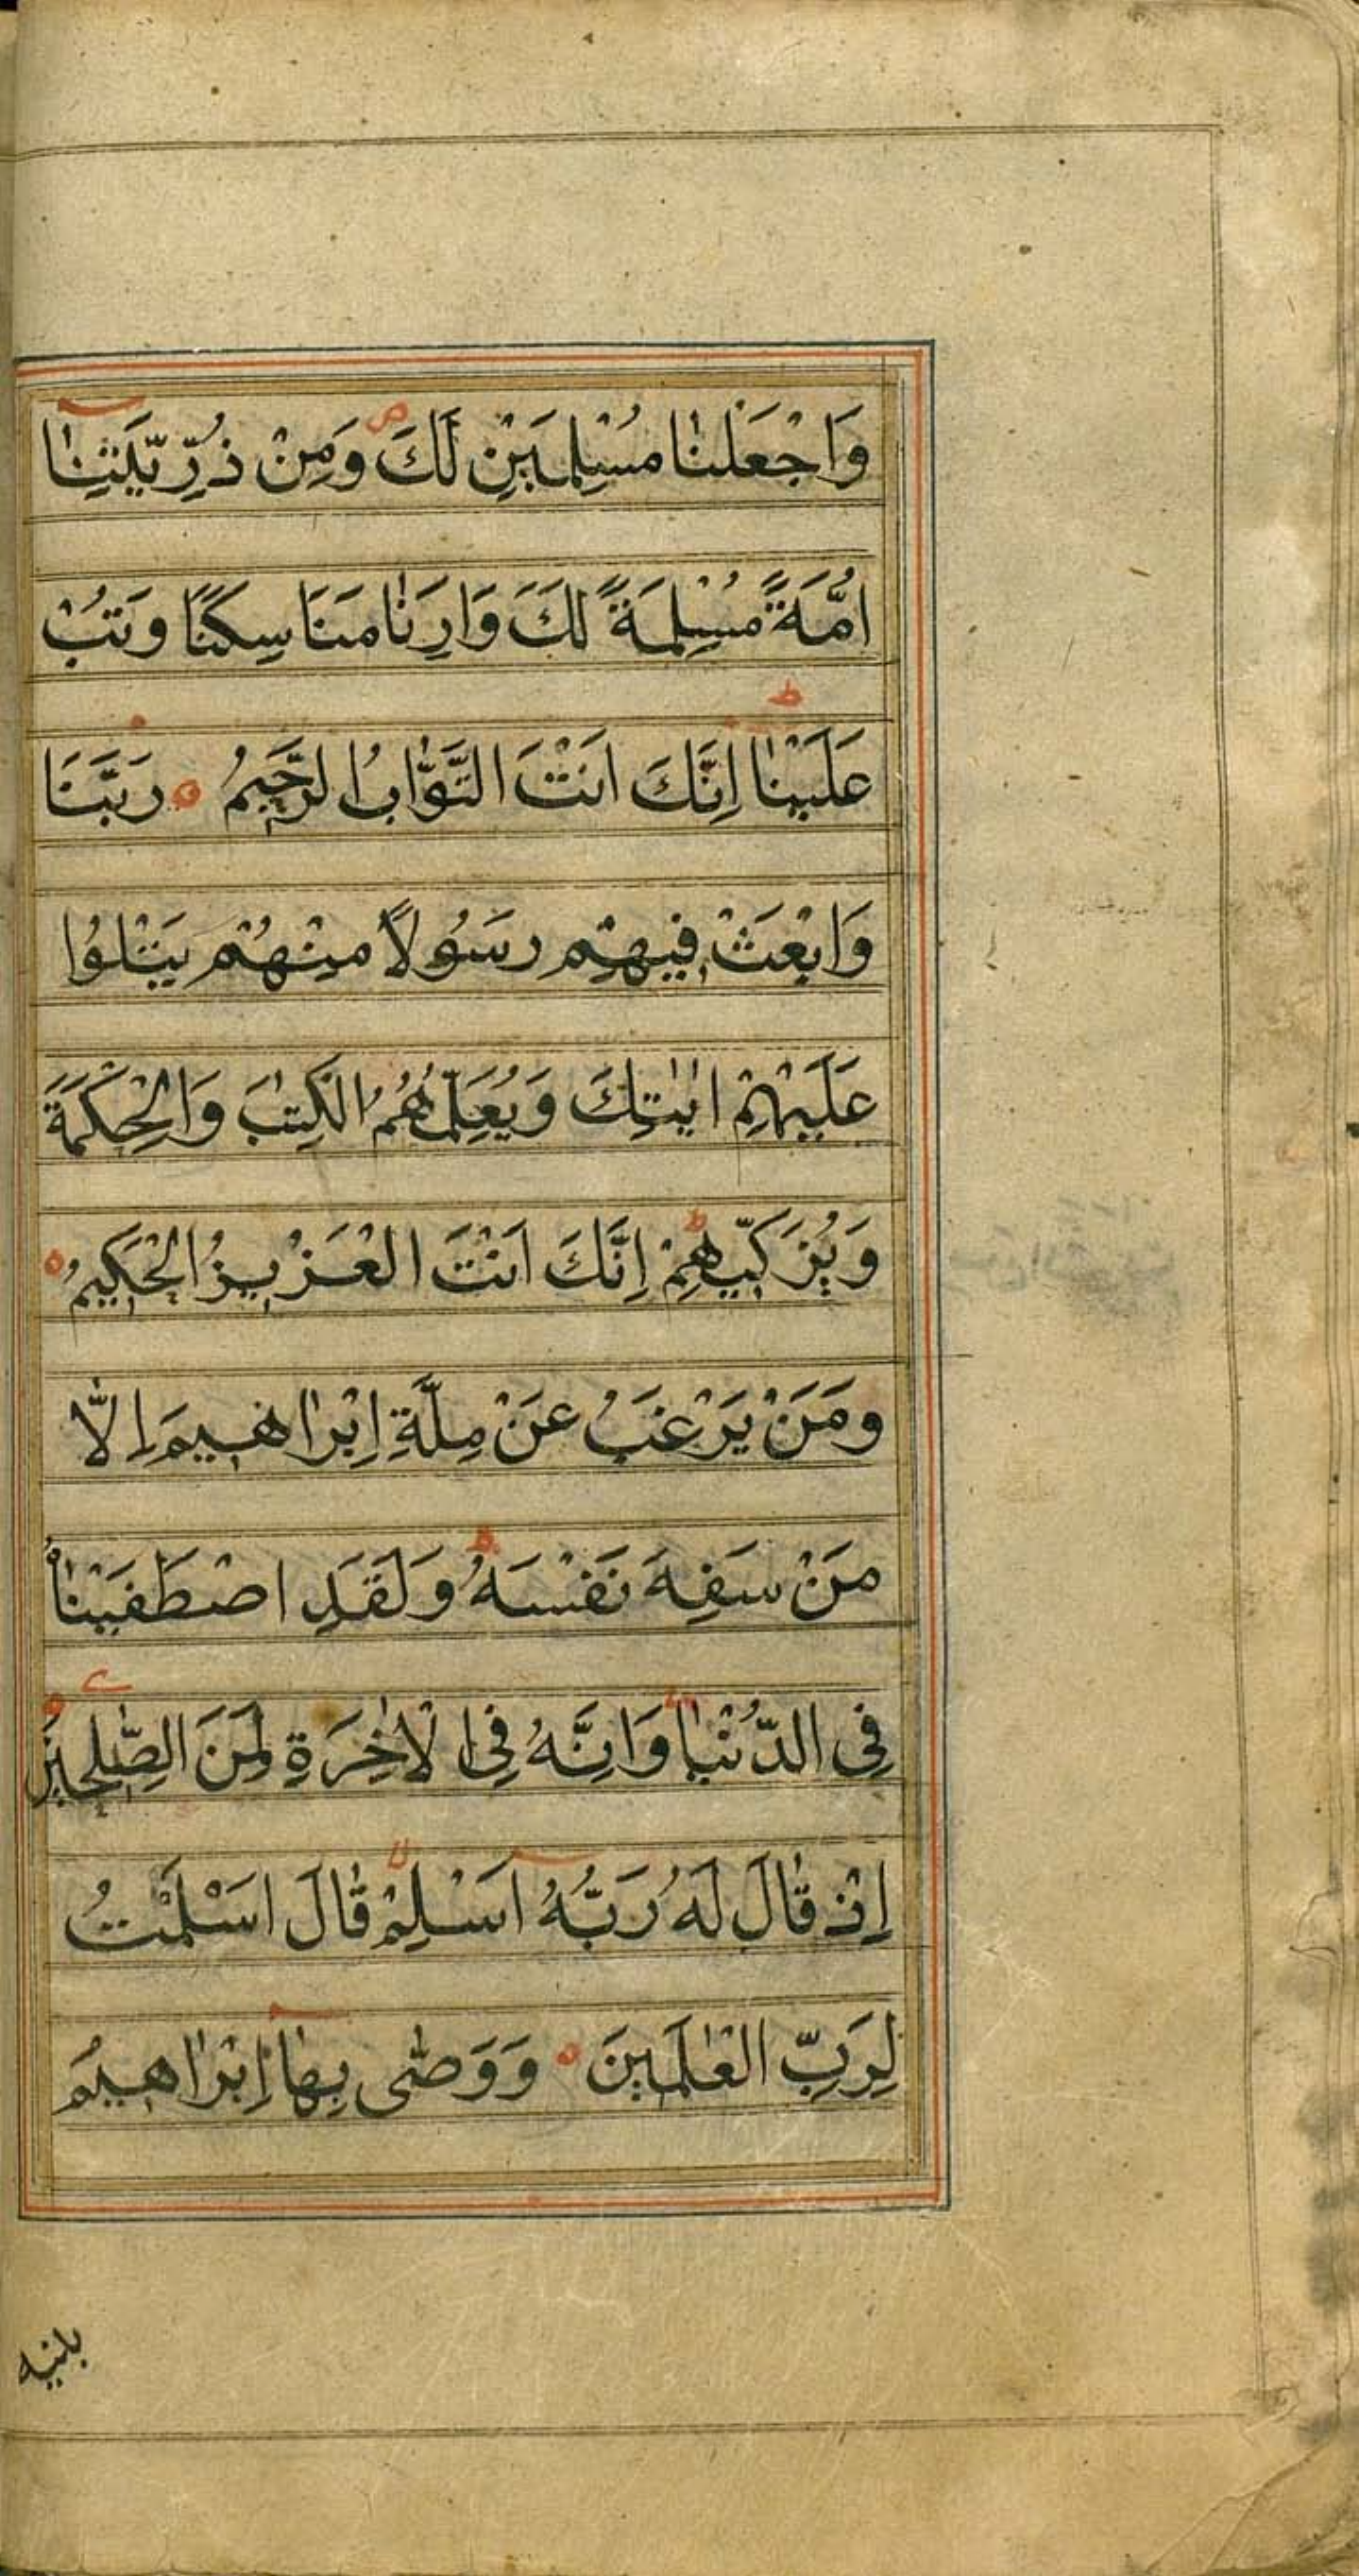 وَاجْعَلْنٰا مُسْلِمَيْنِ لَكَ ۖ وَمِنْ ذُرِّيَّتِنٰا
اُمَّةً مُسْلِمَةً لَكَ وَاَرِنٰا مَنَاسِكَنَا وَتُبْ
عَلَيْنٰا ط اِنَّكَ اَنْتَ التَّوّٰابُ الرَّحٖيمُ ه رَبَّنَا
وَابْعَثْ فٖيهِمْ رَسُولاً مِنْهُمْ يَتْلُوا
عَلَيْهِمْ اٰيٰتِكَ وَيُعَلِّمُهُمُ الْكِتٰبَ وَالْحِكْمَةَ
وَيُزَكّٖيهِمْ ط اِنَّكَ اَنْتَ الْعَزٖيزُ الْحَكٖيمُ ه
وَمَنْ يَرْغَبُ عَنْ مِلَّةِ اِبْرٰاهٖيمَ اِلاّٰ
مَنْ سَفِهَ نَفْسَهُ ط وَلَقَدِ اصْطَفَيْنٰاهُ
فِى الدُّنْيٰا وَاِنَّهُ فِى الْاٰخِرَةِ لَمِنَ الصّٰلِحٖينَ
اِذْ قٰالَ لَهُ رَبُّهُ اَسْلِمْ لا قٰالَ اَسْلَمْتُ
لِرَبِّ الْعٰلَمٖينَ ه وَوَصّٰى بِهٰا اِبْرٰاهٖيمُ
بنيه